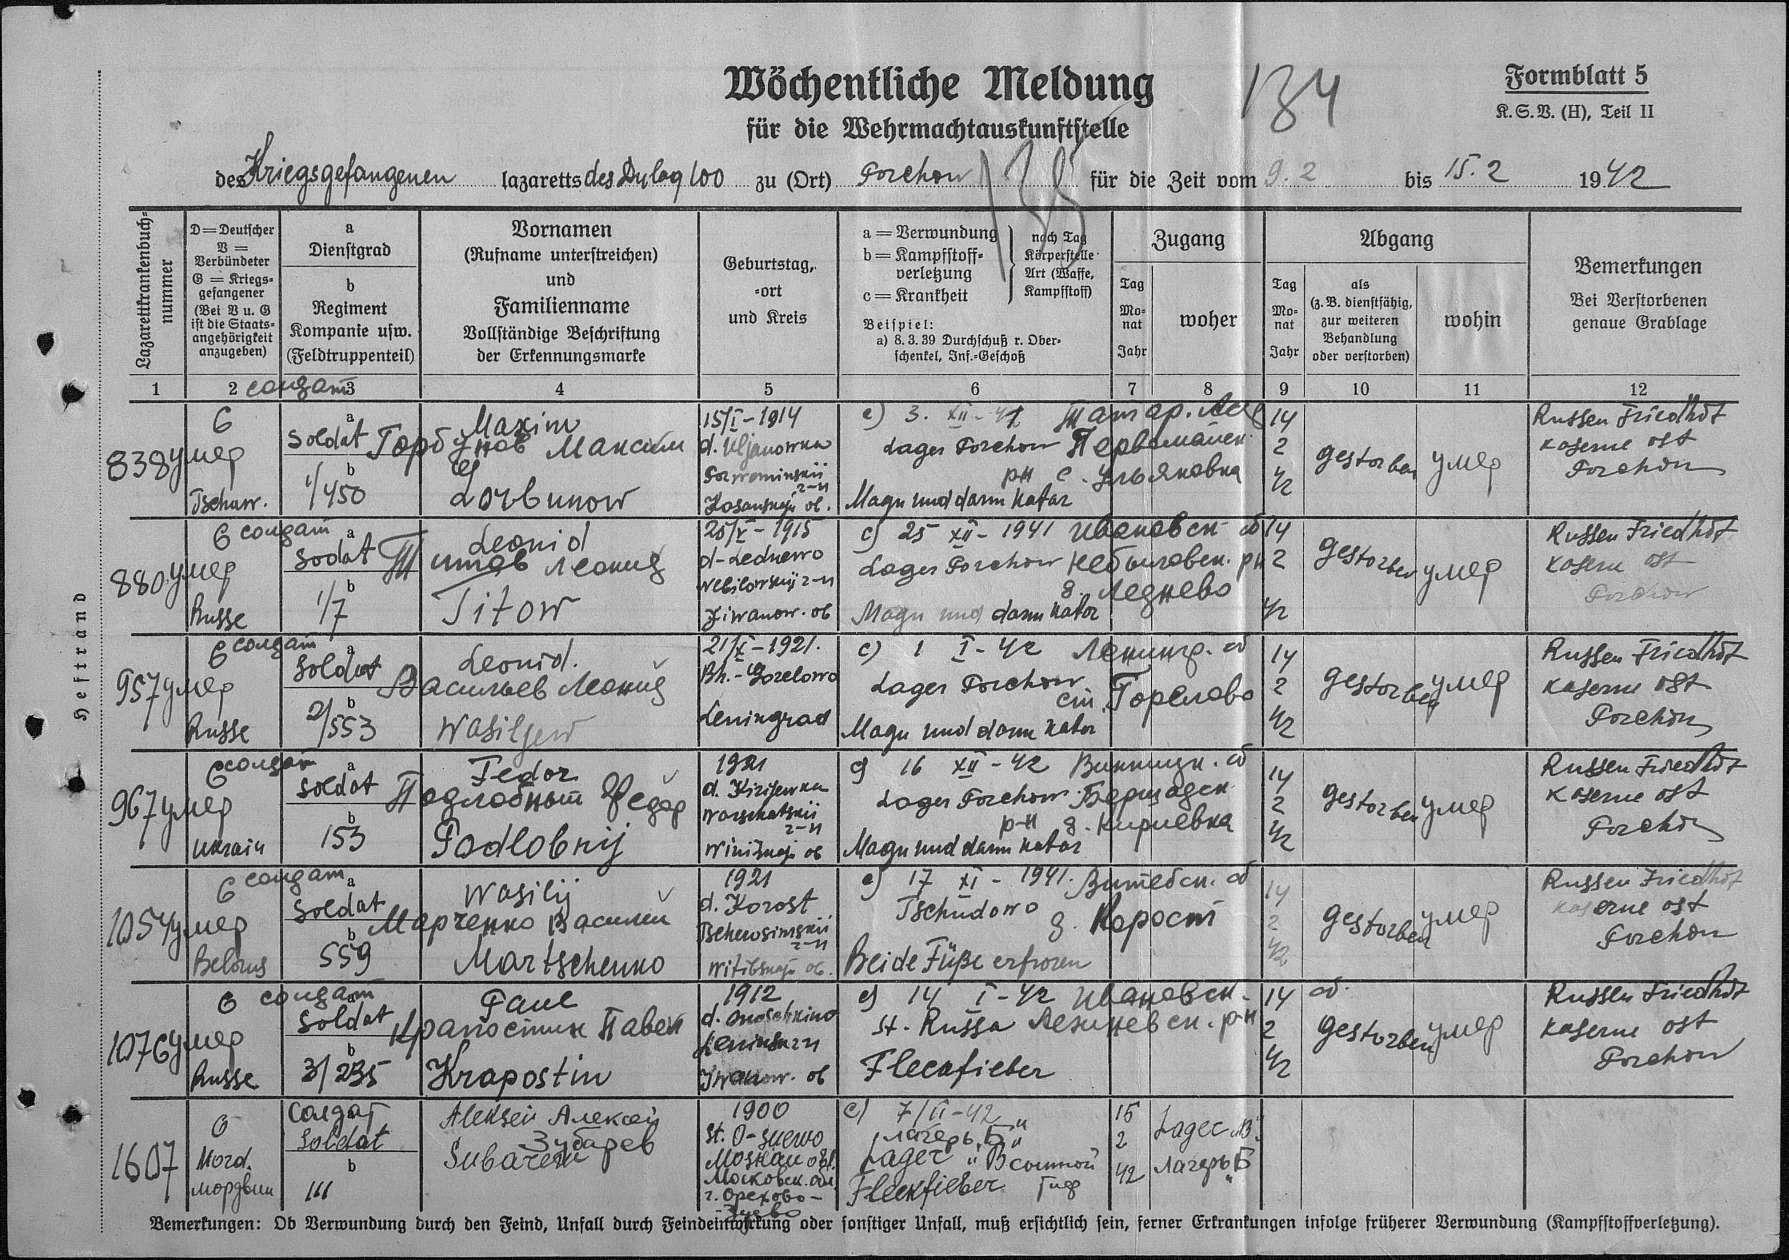 Wöchentliche Meldung
für die Wehrmachtauskunftstelle
Formblatt 5
K.S.V. (H), Teil II
134
135
des Kriegsgefangenen lazaretts des Dulag 100 zu (Ort) Porchow für die Zeit vom 9.2 bis 15.2 1942
Heftrand
Lazarettkrankenbuch-
nummer
D=Deutscher
V =
Verbündeter
G = Kriegs-
gefangener
(Bei V u. G
ist die Staats-
angehörigkeit
anzugeben)
a
Dienstgrad
b
Regiment
Kompanie usw.
(Feldtruppenteil)
Vornamen
(Rufname unterstreichen)
und
Familienname
Vollständige Beschriftung
der Erkennungsmarke
Geburtstag,
-ort
und Kreis
a = Verwundung
b = Kampfstoff-
verletzung
c = Krankheit
nach Tag
Körperstelle
Art (Waffe,
Kampfstoff)
Beispiel:
a) 8.3.39 Durchschuß r. Ober-
schenkel, Inf.-Geschoß
Zugang
Tag
Mo-
nat
Jahr
woher
Abgang
Tag
Mo-
nat
Jahr
als
(z.B. dienstfähig,
zur weiteren
Behandlung
oder verstorben)
wohin
Bemerkungen
Bei Verstorbenen
genaue Grablage
1 2 3 4 5 6 7 8 9 10 11 12
838 умер
G
солдат
a
Soldat
b
1/450
Maxim
Горбунов Максим
Gorbunow
15/I-1914
d. Uljanowka
c) 3. XII-41 Татар.
Lager Porchow Первомайск.
р-н с. Ульяновка
Magn und darm katar
14
2
42
gestorben умер
Russen Friedhof
kaserne ost
Porchow
880 умер
G солдат
Russe
a
Sodat
b
1/7
Leonid
Титов Леонид
Titow
25/V-1915
d-Lednewo
Jiwanow. ob
c) 25 XII-1941 Ивановск. об
Lager Porchow Небыловск. р-н
д. Леднево
Magn und darm katar
14
2
42
gestorben умер
Russen Friedhof
kasern ost
Porchow
957 умер
G солдат
Russe
a
Soldat
b
2/553
Leonid.
Васильев Леонид
Wasiljew
21/X-1921.
Bh.-Gorelowo
Leningrad
c) 1 I-42 Ленингр. об
Lager Porchow
ст. Горелово
Magn und darm katar
14
2
42
gestorben умер
Russen Friedhof
kaserne ost
Porchow
967 умер
G солдат
Ukrain
a
Soldat
b
153
Fedor
Подлобный Федор
Podlobnij
1921
d. Kirijewka
c) 16 XII-42 Винницк. об
Lager Porchow Бершадск.
р-н д. Кириевка
Magn und darm katar
14
2
42
gestorben умер
Russen Friedhof
kaserne ost
Porchow
1054 умер
G солдат
Belorus
a
Soldat
b
559
Wasilij
Марченко Василий
Martschenko
1921
d. Korost
c) 17 XI-1941. Витебск. об
Tschudowo
д. Корост
Beide Füße erfroren
14
2
42
gestorben умер
Russen Friedhof
kaserne ost
Porchow
1076 умер
G солдат
Russe
Soldat
b
3/235
Paul
Крапостин Павел
Krapostin
1912
Iwanow. ob
c) 14 I-42 Ивановск. об.
St. Russa Лежневск. р-н
Fleckfieber
14
2
42
gestorben умер
Russen Friedhof
kaserne ost
Porchow
1607
G
Mord.
мордвин
Солдат
Soldat
b
111
Aleksei Алексей
Зубарев
Subarew
1900
St. O-Suewo
Moskau obl.
Московск. обл
г. Орехово-
Зуево
c) 7/II-42
лагерь „Б"
Lager „B" сыпной
Fleckfieber тиф
15
2
42
Lager „B"
лагерь „Б"
Bemerkungen: Ob Verwundung durch den Feind, Unfall durch Feindeinwirkung oder sonstiger Unfall, muß ersichtlich sein, ferner Erkrankungen infolge früherer Verwundung (Kampfstoffverletzung).